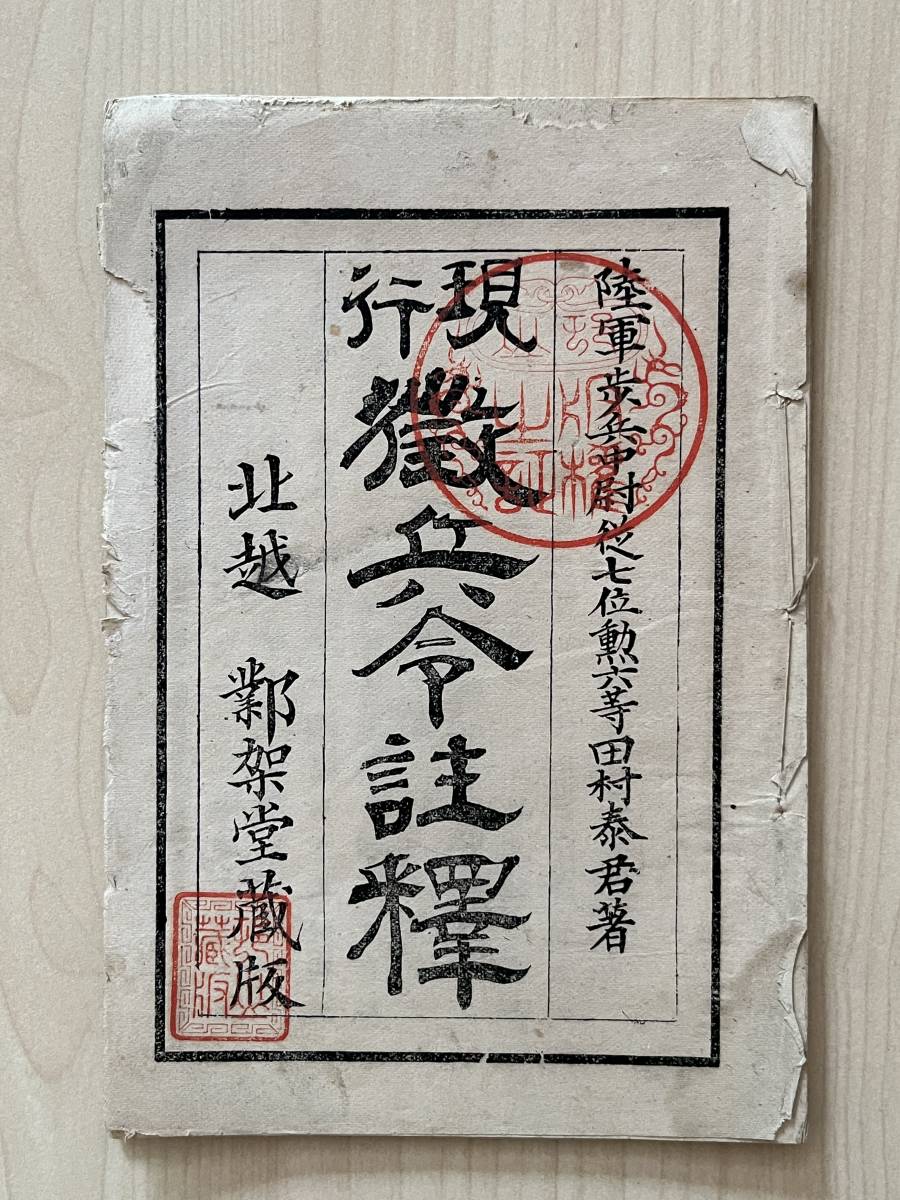 陸軍歩兵中尉従七位勲六等田村泰君著
現行徵兵令註釋
北越 鄴架堂藏版